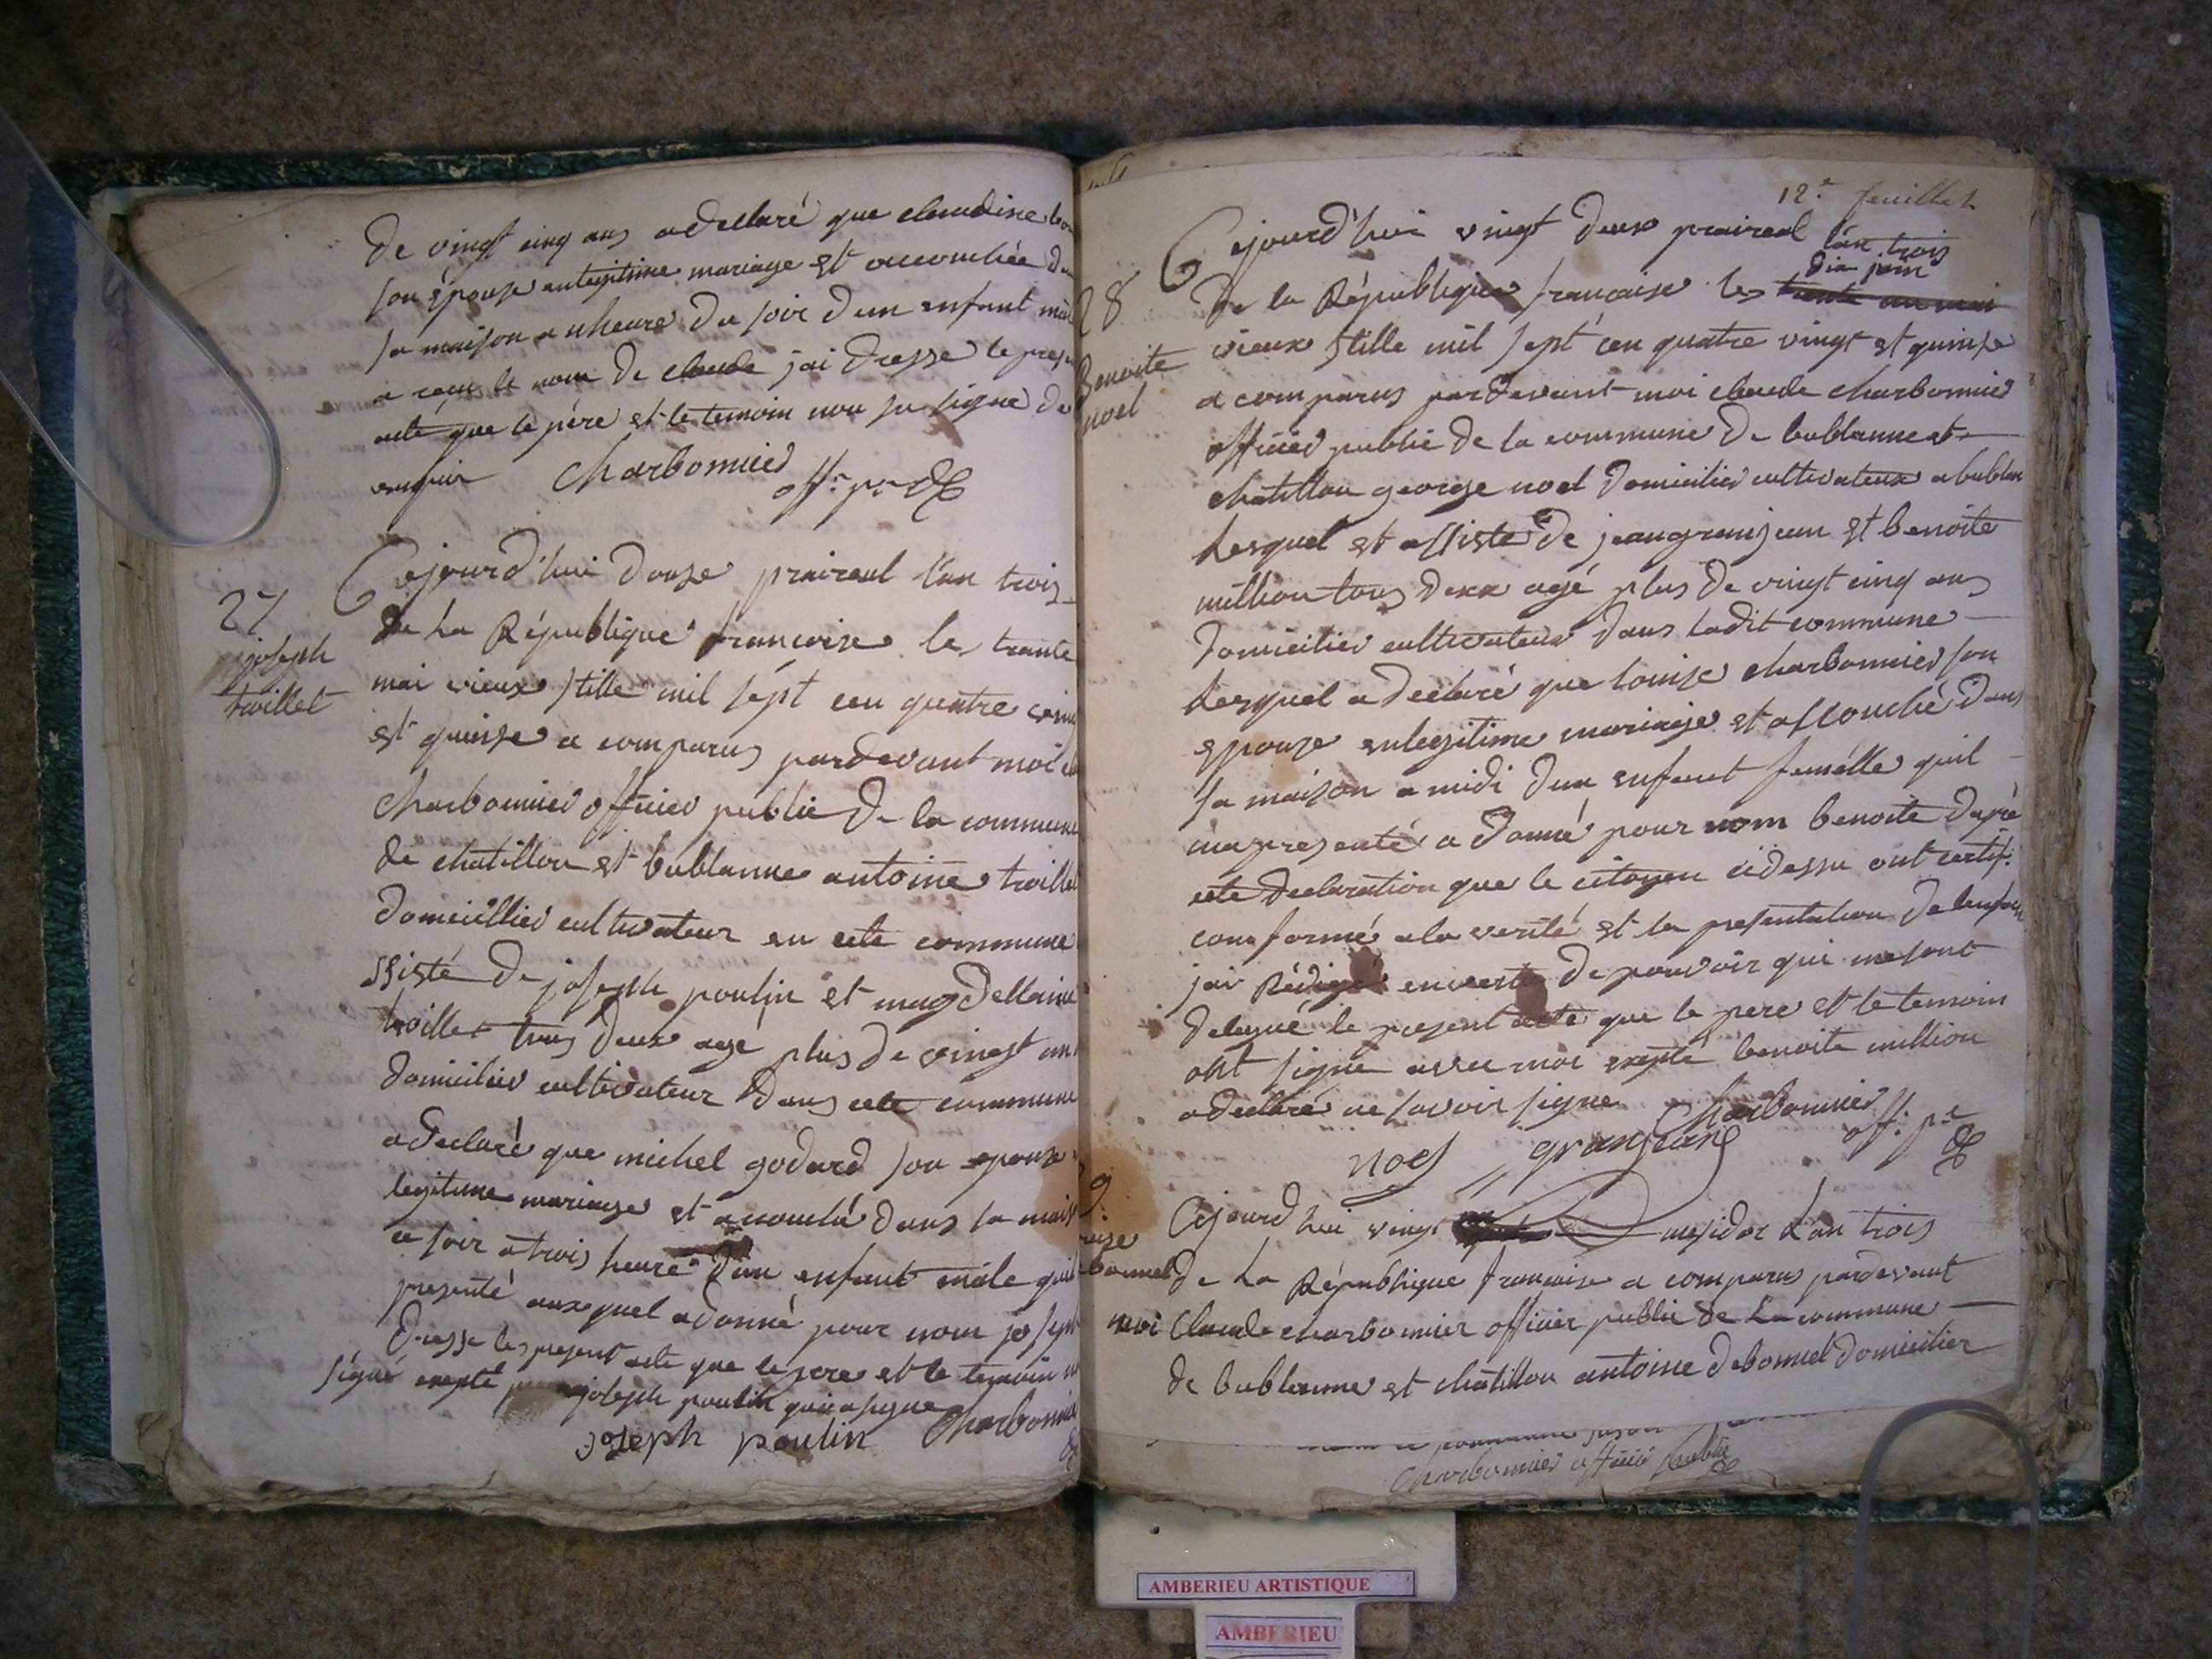 de vingt cinq ans a declaré que claudine
son épouse enlegitime mariage est accouchée
sa maison a uheure du soir dun enfant
a reçu le nom de claude jai dresse le
acte que le père est le temoin non su signe de
Charbonnier
off.r p.c
27
joseph
troillet
Cejourd'hui douse praireal l'an trois
de La République francoise les trante
mai vieux stille mil sépt cen quatre
est quinse a comparus pardevant moi
Charbonnier officier public De la commune
de chatillon est bublanne antoine troillet
domicillier cultivateur en cete commune
ssisté De joseph poulin et magdellaine
troillet tous deux agé plus de vingt un
domicilier cultivateur Dans cete commune
a declaré que michel godard son epouse
legitime mariage est acouché dans sa
ce soir a trois heure d'un enfant mâle
presenté auxquel a donné pour nom joseph
Dresse les present acte que le pere et le temoin
signé exepté joseph poulin qui a signe
joseph poulin Charbonnier
12.e feuillet
28
Benoite
noel
Cejourd'hui vingt deux praireal l'an trois
de la République francaise les trente un mai dix juin
vieux stille mil sept cen quatre vingt est quinse
a comparus pardevant moi claude charbonnier
officier public De la commune De bublanne et
chatillon george noel domicilier cultivateur a bublan
Lesquel est assisté de jean granjean est benoite
million tous dexx agé plus de vingt cinq ans
domicilier cultivateur dans ladit commune
Lesquel a declaré que louise charbonnier son
epouse enlegitime mariage est assouché dans
sa maison a midi dun enfant fumélle quil
ma presenté a donné pour nom benoite daprè
cete declaration que le citoyen cidessu ont certif.
conformé a la verité est la presentation
jai Rédigé enverte de pouvoir qui me sont
delegué le present acte que le pere et le temoin
ont signe avec moi exepté benoite million
a declaré ne savoir signe Charbonnier
noel granjean off. p.c
9.
Cejourd'hui vingt messidor L'an trois
de La République francaise a comparu pardevant
moi Claude charbonnier officier public de La commune
de bublanne est chatillon antoine debonnel domicilier
Charbonnier officier public
AMBERIEU ARTISTIQUE
AMBERIEU